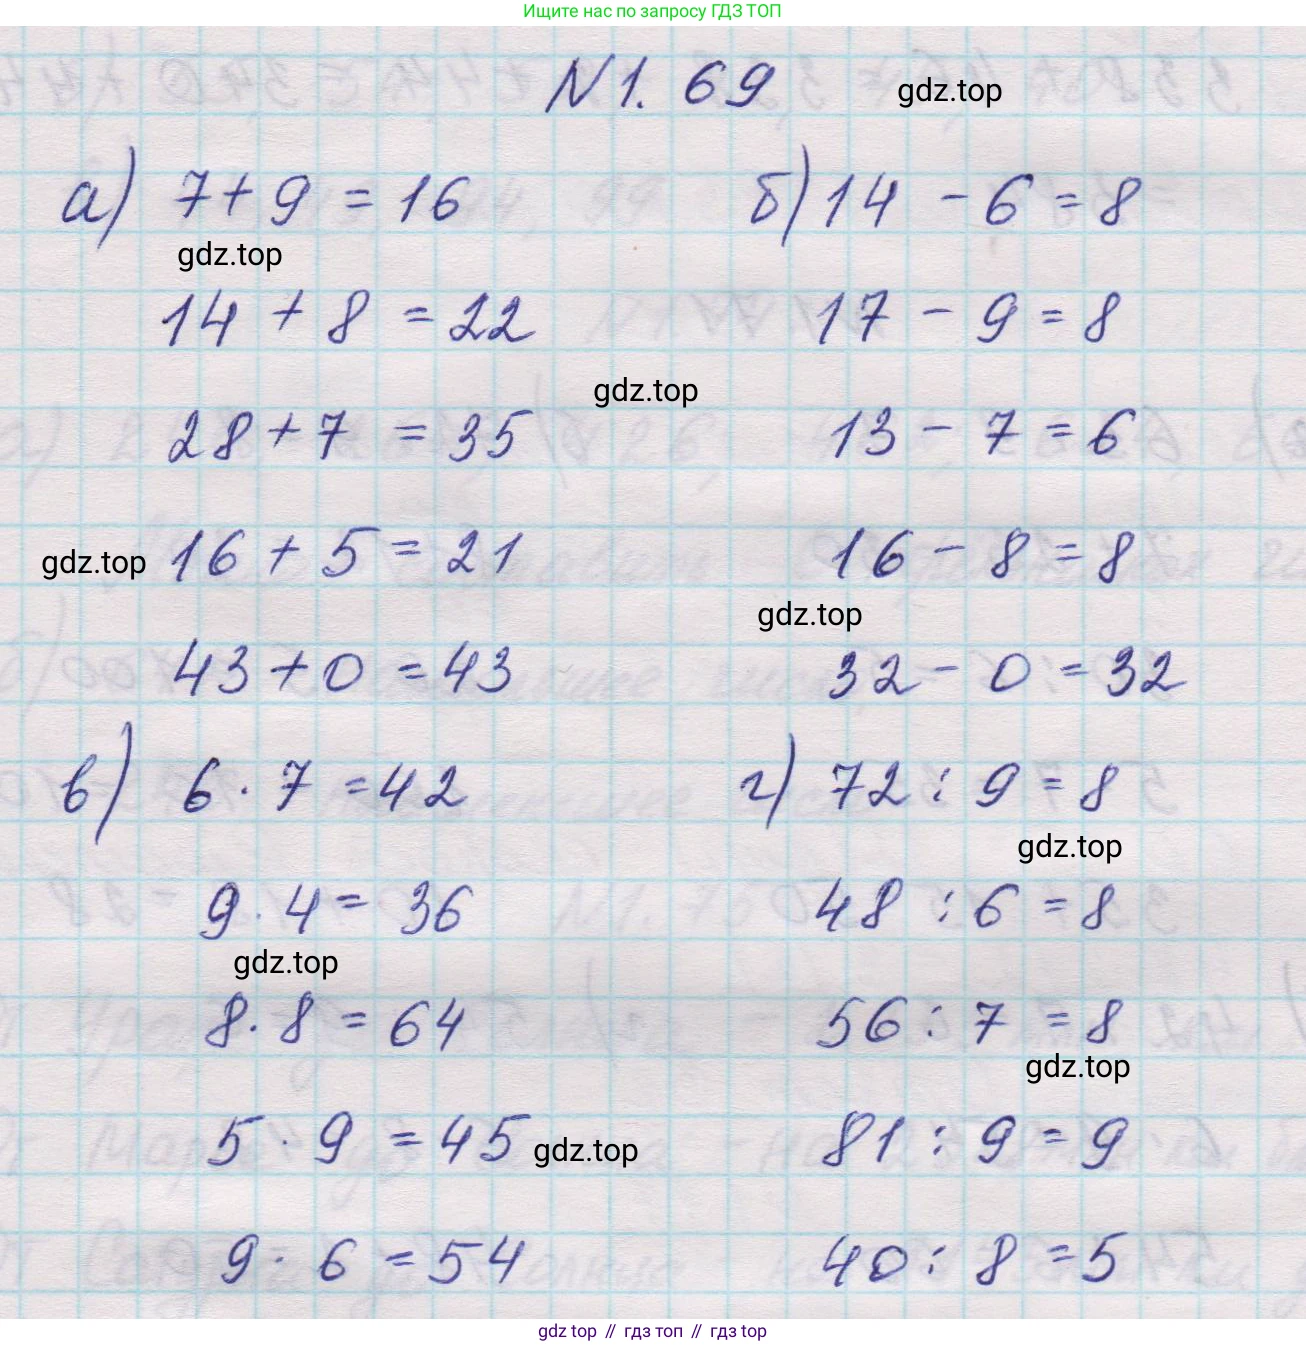 Ищите нас по запросу ГДЗ ТОП
N1. 69
gdz.top
а) 7+9 = 16
б) 14 - 6 = 8
gdz.top
14 + 8 = 22
17 - 9 = 8
gdz.top
28 + 7 = 35
13 - 7 = 6
gdz.top
16 + 5 = 21
16 - 8 = 8
gdz.top
43 + 0 = 43
32 - 0 = 32
в) 6 · 7 = 42
г) 72 : 9 = 8
gdz.top
9 · 4 = 36
48 : 6 = 8
gdz.top
8 · 8 = 64
56 : 7 = 8
gdz.top
5 · 9 = 45
gdz.top
81 : 9 = 9
9 · 6 = 54
40 : 8 = 5
gdz top // гдз топ // gdz top